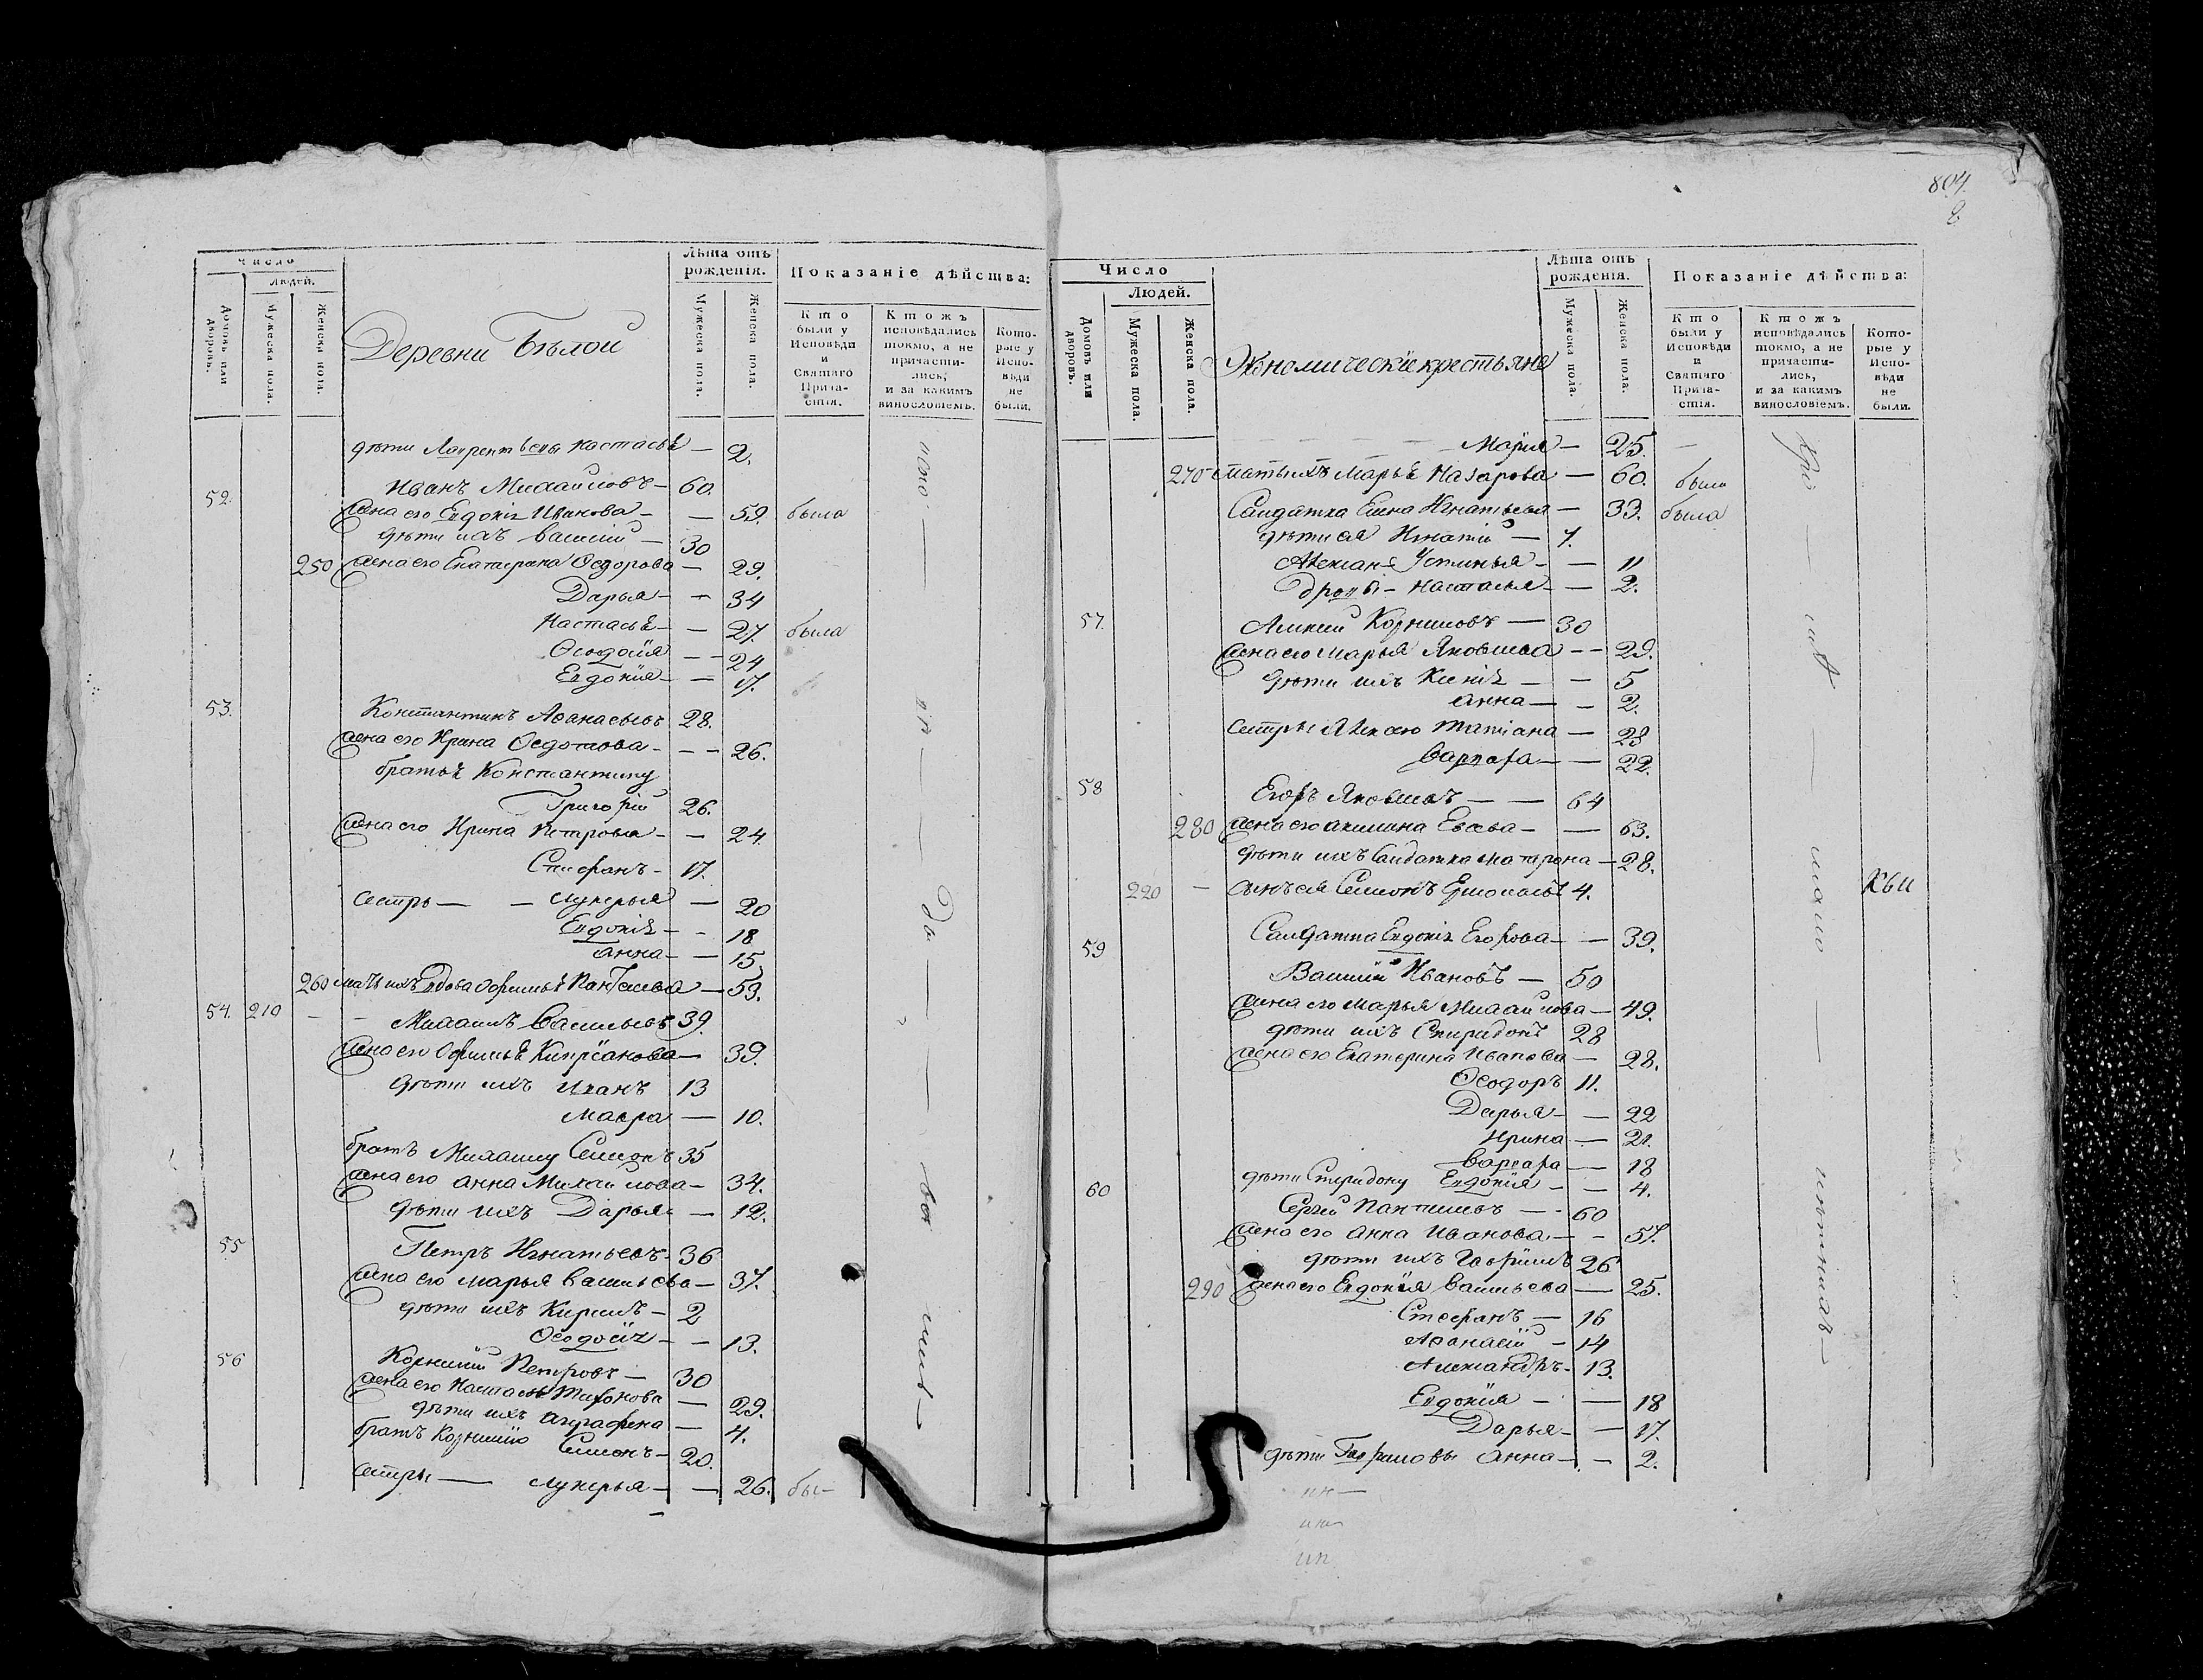 804.
Число
Людей.
Домовъ или дворовъ.
Мужеска пола.
Женска пола.
Деревни Бѣлой
Лѣта отъ рожденія.
Мужеска пола.
Женска пола.
Показаніе дѣйства:
Кто были у Исповѣди и Святаго Прича- стія.
Ктожъ исповѣдались токмо, а не причасти- лись, и за какимъ винословіемъ.
Кото- рые у Испо- вѣди не были.
дѣти Лаврентьевы Настасья — 2.
52. Иванъ Михайловъ — 60.
жена его Евдокія Иванова — — 59. была
дѣти ихъ Василій — 30
250 жена его Екатерина Ѳедорова — 29.
Дарья — — 34
Настасья — — 27. была
Ѳеодосія — — 24
Евдокія — — 17.
53. Константинъ Аѳанасьевъ 28.
жена его Ирина Ѳедотова — — — 26.
братья Константину
Григорій 26.
жена его Ирина Петрова — — 24.
Стефанъ — 17.
сестры — — Лукерья — 20
Евдокія — — 18
Анна — — 15
260 мать ихъ вдова Офимья — 53.
54. 210 — — Михаилъ Васильевъ 39.
жена его Офимья Кипріанова — 39.
дѣти ихъ Иванъ 13
Мавра — 10.
братъ Михаилу Семионъ 35
жена его Анна Михайлова — 34.
дѣти ихъ Дарья — — 12.
55 Петръ Игнатьевъ — 36
жена его Марья Васильева — 37.
дѣти ихъ Кирилъ — 2
Ѳеодосія — — 13.
56 Корнилій Петровъ — 30
жена его Настасья — 29.
дѣти ихъ Аграфена — 4.
братъ Корнилію Семионъ — 20.
сестры — Лукерья — — 26. бы—
Число
Людей.
Домовъ или дворовъ.
Мужеска пола.
Женска пола.
Экономическіе крестьяне
Лѣта отъ рожденія.
Мужеска пола.
Женска пола.
Показаніе дѣйства:
Кто были у Исповѣди и Святаго Прича- стія.
Ктожъ исповѣдались токмо, а не причасти- лись, и за какимъ винословіемъ.
Кото- рые у Испо- вѣди не были.
Марія — 25.
270 мать ихъ Марья Назарова — 60. была
Салдатка Елена Игнатьева — 33. была
дѣти ея Игнатій — 7.
Устинья — — 11
Настасья — — 2.
57. Алексѣй Корниловъ — 30
жена его Марья Яковлева — — 29.
дѣти ихъ Ксенія — — 5
Анна — — 2.
сестры Алексѣю Татіана — 23
Варвара — — 22.
58 Егоръ Яковлевъ — — 64
280 жена его Акилина — — 63.
дѣти ихъ Салдатка Матрона — 28.
220 — сынъ ея Семионъ 4.
59 Салдатка Евдокія Егорова — — 39.
Василій Ивановъ — 50
жена его Марья Михайлова — 49.
дѣти ихъ Спиридонъ 28
жена его Екатерина Иванова — 28.
Ѳеодоръ 11.
Дарья — — 22
Ирина — 21.
Варвара — 18
дѣти Спиридону Евдокія — — 4.
60 Сергій — 60
жена его Анна Иванова — — 57.
дѣти ихъ Гавріилъ 26
290 жена его Евдокія Васильева — 25.
Стефанъ — 16
Аѳанасій — 14
Александръ — 13.
Евдокія — — 18
Дарья — — 17.
дѣти Гавриловы Анна — — 2.